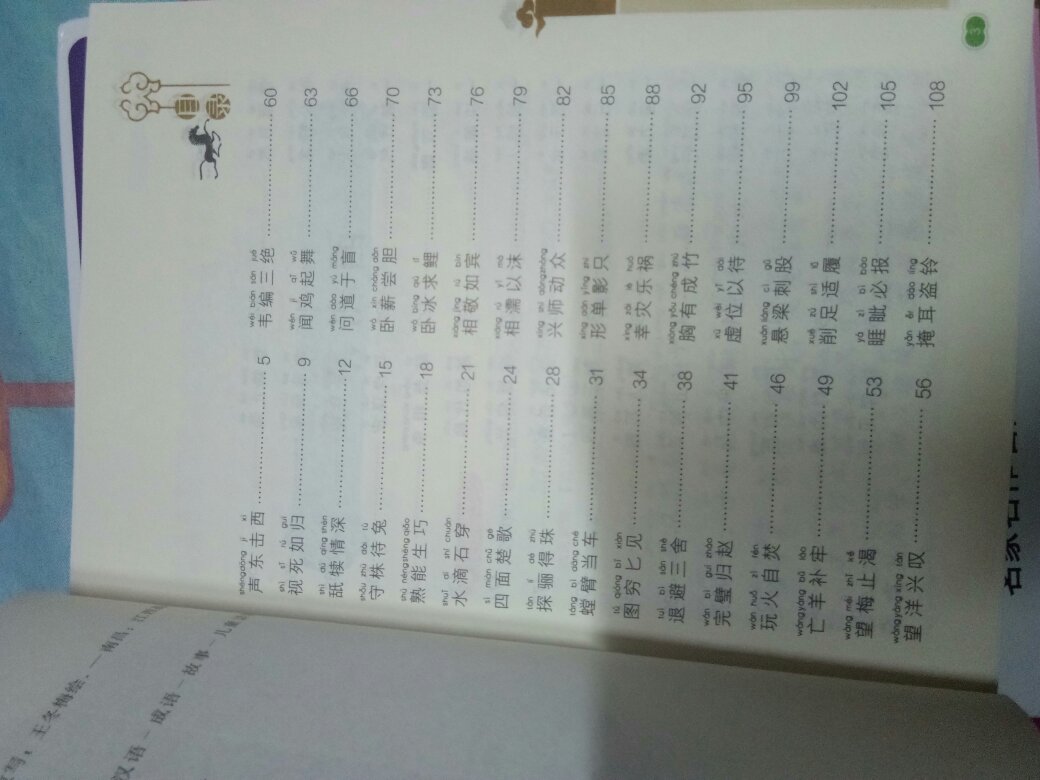 写；王冬梅绘. — 南昌：江西
汉语－成语－故事－儿童
目录
shēng dōng jī xī
声东击西 …… 5
shì sǐ rú guī
视死如归 …… 9
shì dú qíng shēn
舐犊情深 …… 12
shǒu zhū dài tù
守株待兔 …… 15
shú néng shēng qiǎo
熟能生巧 …… 18
shuǐ dī shí chuān
水滴石穿 …… 21
sì miàn chǔ gē
四面楚歌 …… 24
tàn lí dé zhū
探骊得珠 …… 28
táng bì dāng chē
螳臂当车 …… 31
tú qióng bǐ xiàn
图穷匕见 …… 34
tuì bì sān shè
退避三舍 …… 38
wán bì guī zhào
完璧归赵 …… 41
wán huǒ zì fén
玩火自焚 …… 46
wáng yáng bǔ láo
亡羊补牢 …… 49
wàng méi zhǐ kě
望梅止渴 …… 53
wàng yáng xīng tàn
望洋兴叹 …… 56
wéi biān sān jué
韦编三绝 …… 60
wén jī qǐ wǔ
闻鸡起舞 …… 63
wèn dào yú máng
问道于盲 …… 66
wò xīn cháng dǎn
卧薪尝胆 …… 70
wò bīng qiú lǐ
卧冰求鲤 …… 73
xiāng jìng rú bīn
相敬如宾 …… 76
xiāng rú yǐ mò
相濡以沫 …… 79
xīng shī dòng zhòng
兴师动众 …… 82
xíng dān yǐng zhī
形单影只 …… 85
xìng zāi lè huò
幸灾乐祸 …… 88
xiōng yǒu chéng zhú
胸有成竹 …… 92
xū wèi yǐ dài
虚位以待 …… 95
xuán liáng cì gǔ
悬梁刺股 …… 99
xuē zú shì lǚ
削足适履 …… 102
yá zì bì bào
睚眦必报 …… 105
yǎn ěr dào líng
掩耳盗铃 …… 108
3